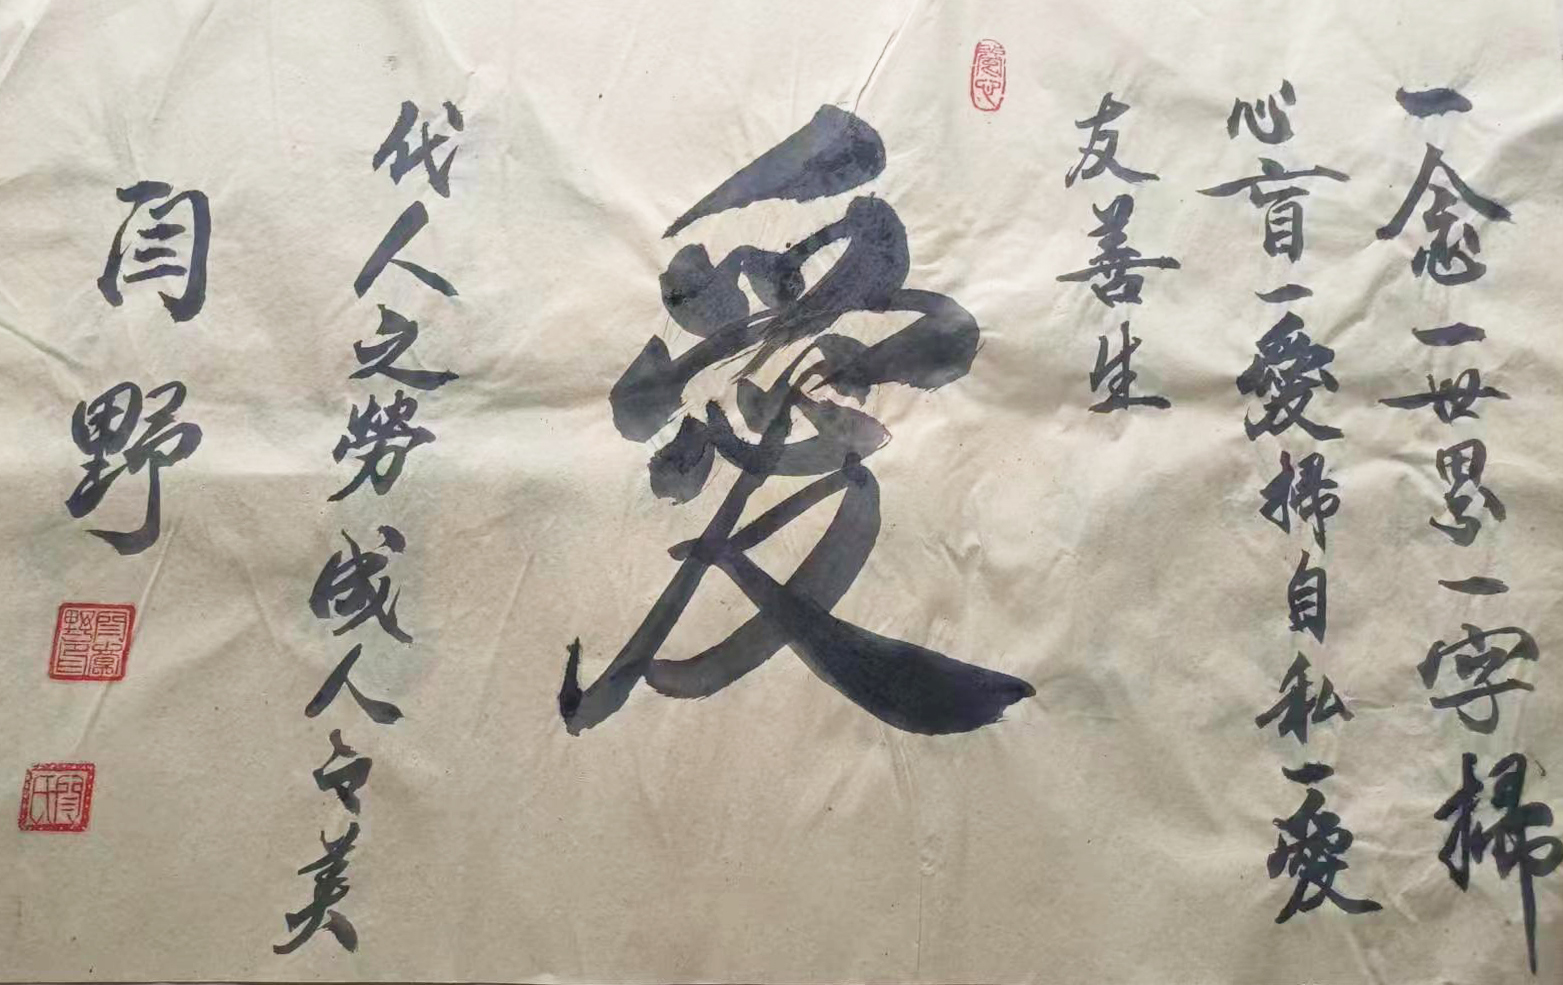 一念一世界一字掃
心盲一愛掃自私一愛
友善生
愛
代人之勞成人之美
闫野